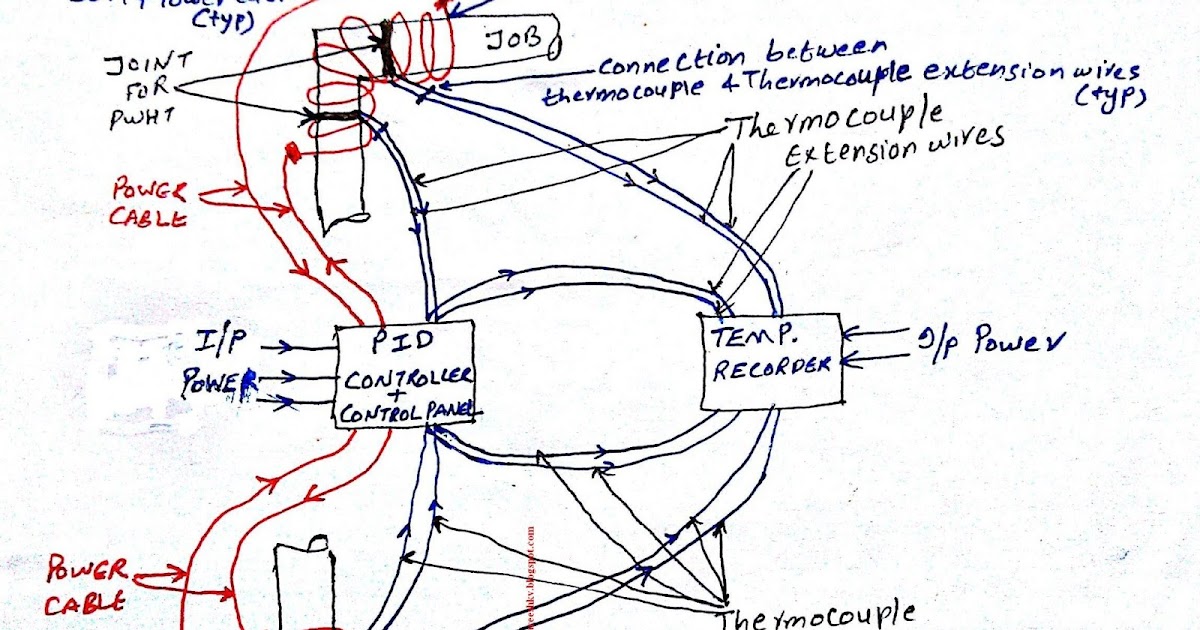 (typ)
JOB
JOINT
FOR
PWHT
connection between
thermocouple & Thermocouple extension wires
(typ)
Thermocouple
Extension wires
POWER
CABLE
I/P
POWER
PID
CONTROLLER
+
CONTROL PANEL
TEMP.
RECORDER
I/p Power
POWER
CABLE
Thermocouple